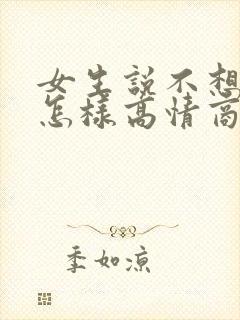 女生説不想
怎様高情商
季如涼